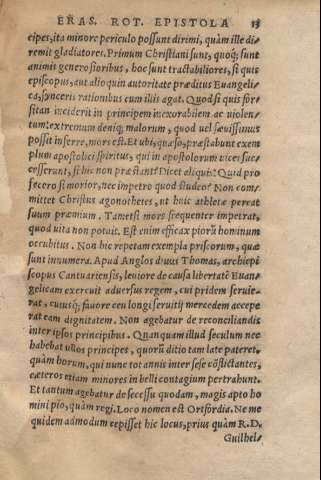 ERAS. ROT. EPISTOLA 13
cipes, ita minore periculo possunt dirimi, quàm ille di=
remit gladiatores. Primum Christiani sunt, quoq́; sunt
animis generosioribus, hoc sunt tractabiliores, si quis
episcopus, aut alioquin autoritate præditus Euangeli=
ca, synceris rationibus cum illis agat. Quod si quis for=
sitan inciderit in principem inexorabilem ac violen=
tum: extremum deniq; malorum, quod uel sæuissimus
possit inferre, mors est. Et ubi, quæso, præstabunt exem
plum apostolici spiritus, qui in apostolorum uices suc=
cesserunt, si hic non præstant? Dicet aliquis: Quid pro
fecero si morior, nec impetro quod studeo? Non com=
mittet Christus agonothetes, ut huic athletæ pereat
suum præmium. Tametsi mors frequenter impetrat,
quod uita non potuit. Est enim efficax piorũ hominum
occubitus. Non hic repetam exempla priscorum, quæ
sunt innumera. Apud Anglos diuus Thomas, archiepi
scopus Cantuariensis, leuiore de causa libertatẽ Euan=
gelicam exercuit aduersus regem, cui pridem seruie=
rat, cuiusq́; fauore ceu longi seruitij mercedem accepe
rat eam dignitatem. Non agebatur de reconciliandis
inter ipsos principibus. Quanquam illud seculum nec
habebat ullos principes, quorũ ditio tam late pateret,
quàm horum, qui nunc tot annis inter sese cõflictantes,
cæteros etiam minores in belli contagium pertrahunt.
Et tantum agebatur de secessu quodam, magis apto ho
mini pio, quàm regi. Loco nomen est Ortfordia. Ne me
quidem admodum cepisset hic locus, prius quàm R.D.
Guilhel=